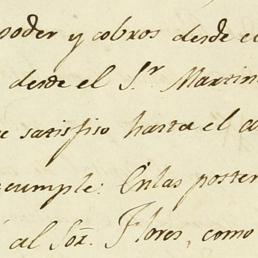 poder y cobros desde e
desde el S.r Martin
e satisfiso hasta el a
cumple: En las poster
al Sor. Flores, como